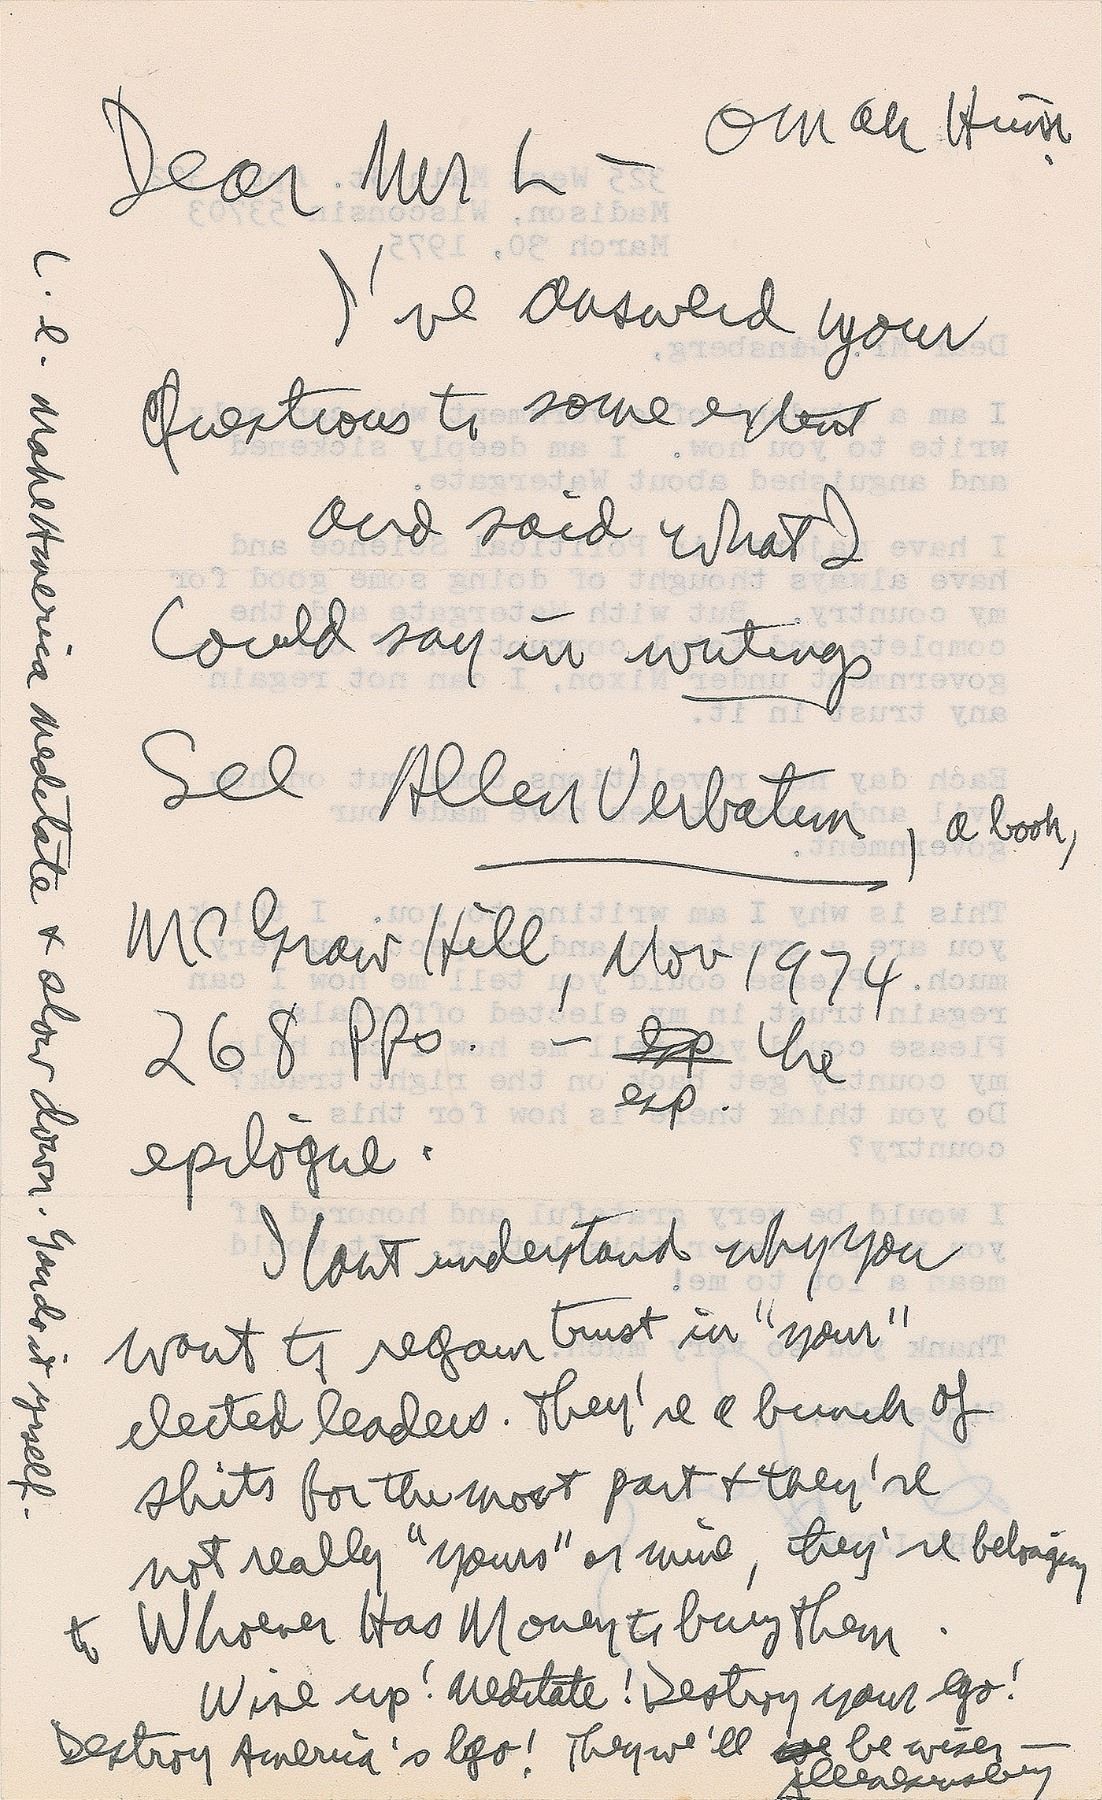 Om Ah Hūm.
Dear Mr L —
I've answerd your
Questions to some extent
and said what I
Could say in writings
See Allen Verbatim, a book,
McGraw Hill, Nov 1974
268 pps. — esp the
esp.
epilogue.
I can't understand why you
want to regain trust in "your"
elected leaders. They're a bunch of
shits for the most part & they're
not really "yours" or mine, they're belonging
to Whoever Has Money to buy them.
Wise up! Meditate! Destroy your ego!
Destroy America's Ego! Then we'll be wiser —
Allen Ginsberg
i.e. Make America meditate & slow down. You do it yrself.
325 West
Madison, Wisconsin 53703
March 30, 1975
Dear Mr. Ginsberg,
I am a
write to you now. I am deeply sickened
and anguished about Watergate.
I have Political Science and
have always thought of doing some good for
my country. But with Watergate and the
complete
government under Nixon, I can not regain
any trust in it.
Each day new revelations come out on how
have made our
government.
This is why I am writing to you. I think
you are a great man and very
much. Please could you tell me how I can
regain trust in my elected officials?
Please could you tell me how I can help
my country get back on the right track?
Do you think there is hope for this
country?
I would be very grateful and honored if
you would
mean a lot to me!
Thank you so very much.